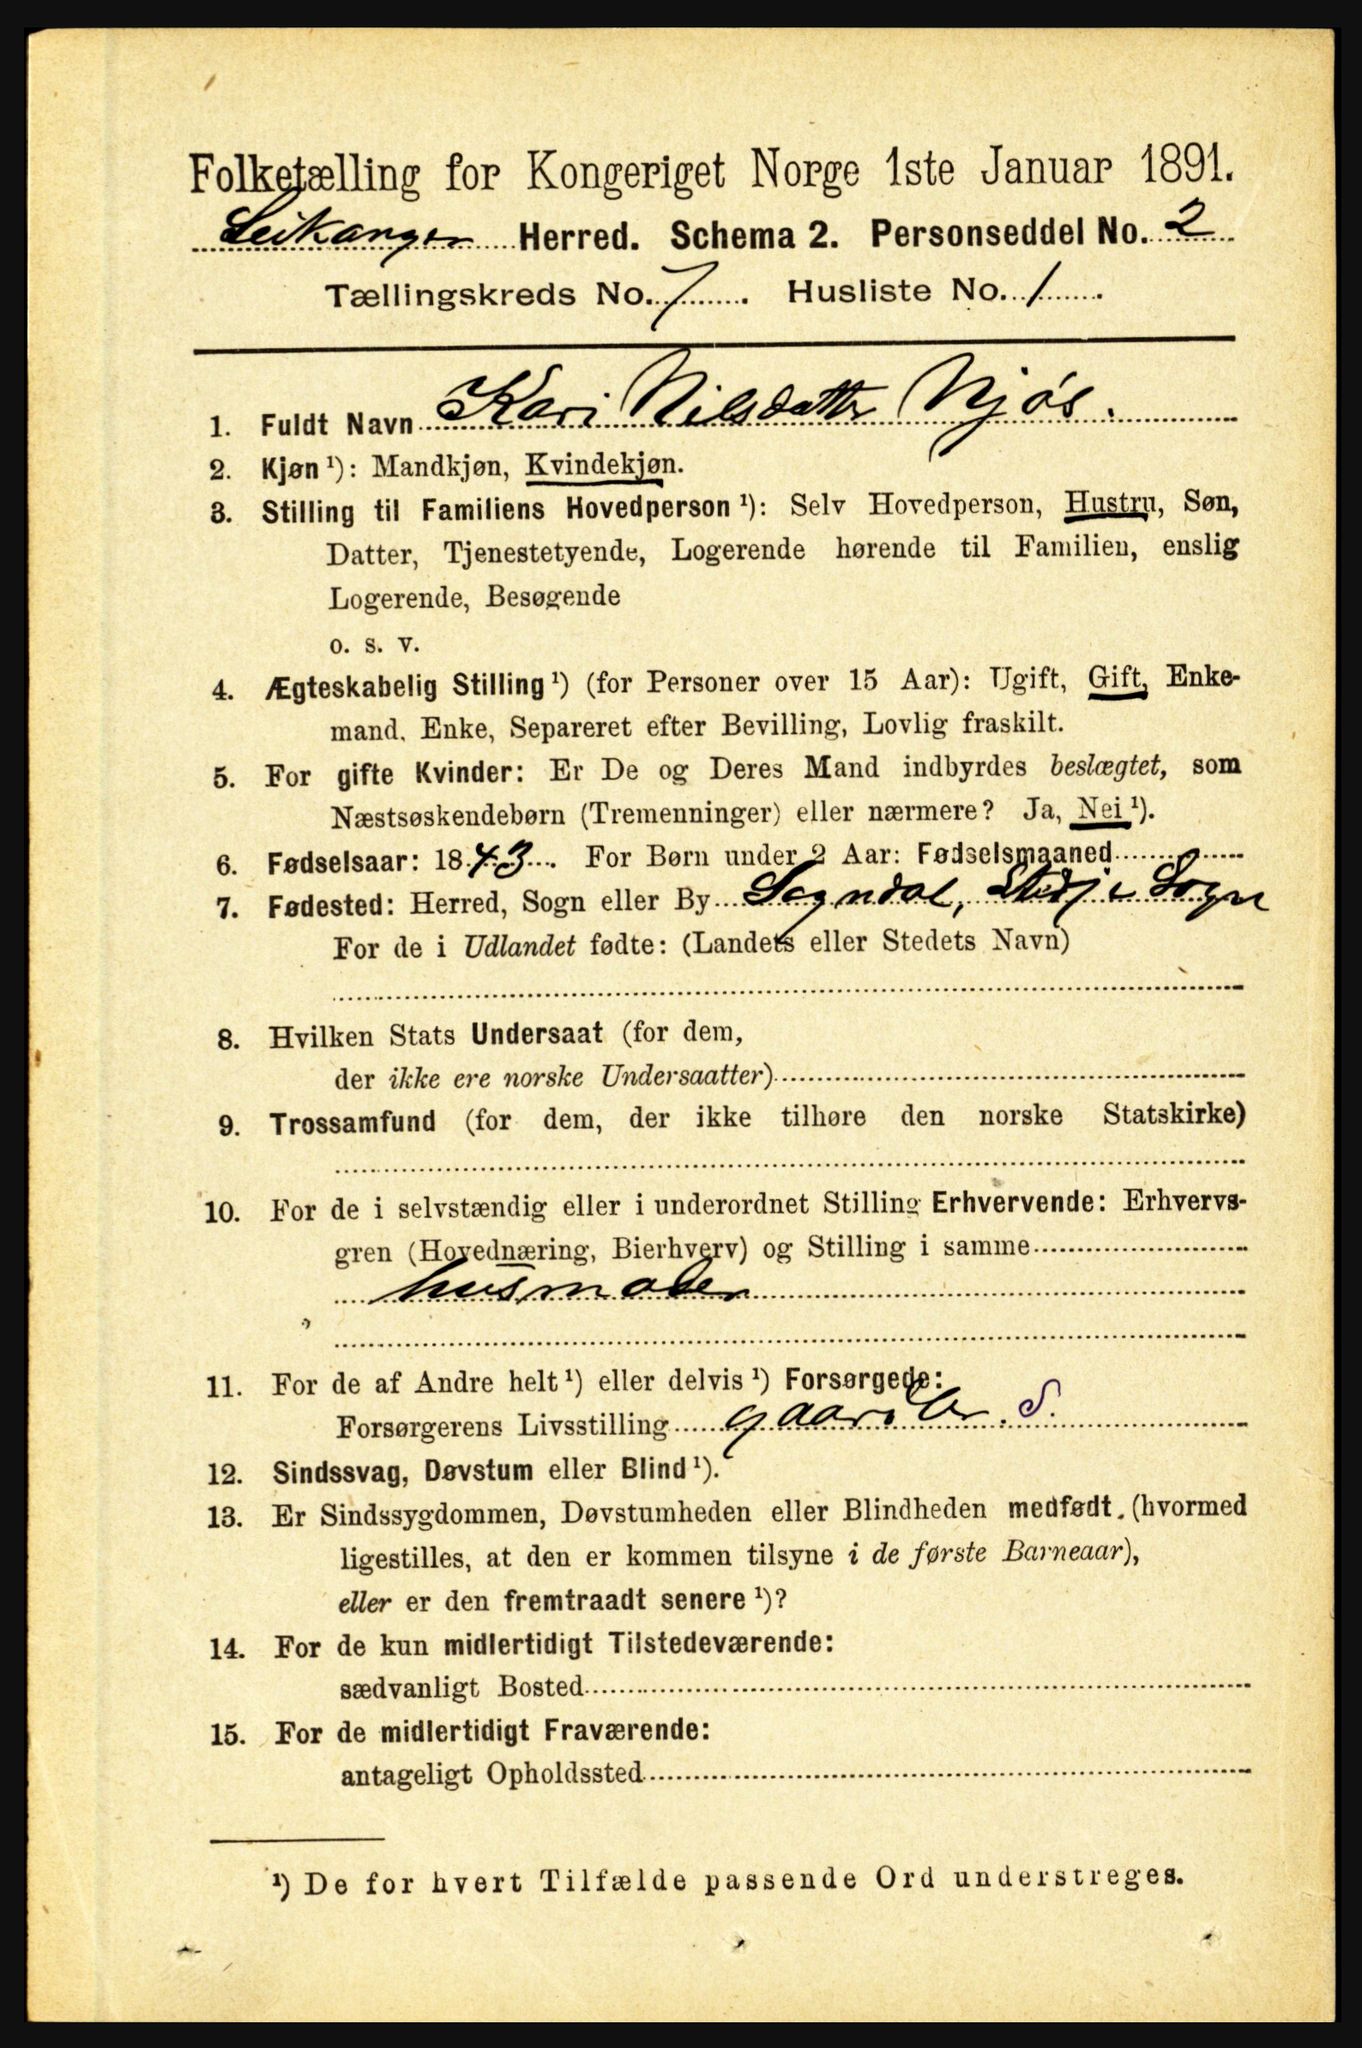 Folketælling for Kongeriget Norge 1ste Januar 1891.
Leikanger Herred. Schema 2. Personseddel No. 2
Tællingskreds No. 7. Husliste No. 1.
1. Fuldt Navn Kari Nilsdatter Njøs.
2. Kjøn ¹): Mandkjøn, Kvindekjøn.
3. Stilling til Familiens Hovedperson ¹): Selv Hovedperson, Hustru, Søn,
Datter, Tjenestetyende, Logerende hørende til Familien, enslig
Logerende, Besøgende
o. s. v.
4. Ægteskabelig Stilling ¹) (for Personer over 15 Aar): Ugift, Gift, Enke-
mand, Enke, Separeret efter Bevilling, Lovlig fraskilt.
5. For gifte Kvinder: Er De og Deres Mand indbyrdes beslægtet, som
Næstsøskendebørn (Tremenninger) eller nærmere? Ja, Nei ¹).
6. Fødselsaar: 1843. For Børn under 2 Aar: Fødselsmaaned
7. Fødested: Herred, Sogn eller By Sogndal, Stedje Sogn
For de i Udlandet fødte: (Landets eller Stedets Navn)
8. Hvilken Stats Undersaat (for dem,
der ikke ere norske Undersaatter)
9. Trossamfund (for dem, der ikke tilhøre den norske Statskirke)
10. For de i selvstændig eller i underordnet Stilling Erhvervende: Erhvervs-
gren (Hovednæring, Bierhverv) og Stilling i samme
husmoder
11. For de af Andre helt ¹) eller delvis ¹) Forsørgede:
Forsørgerens Livsstilling gaardbr. S.
12. Sindssvag, Døvstum eller Blind ¹).
13. Er Sindssygdommen, Døvstumheden eller Blindheden medfødt, (hvormed
ligestilles, at den er kommen tilsyne i de første Barneaar),
eller er den fremtraadt senere ¹)?
14. For de kun midlertidigt Tilstedeværende:
sædvanligt Bosted
15. For de midlertidigt Fraværende:
antageligt Opholdssted
¹) De for hvert Tilfælde passende Ord understreges.